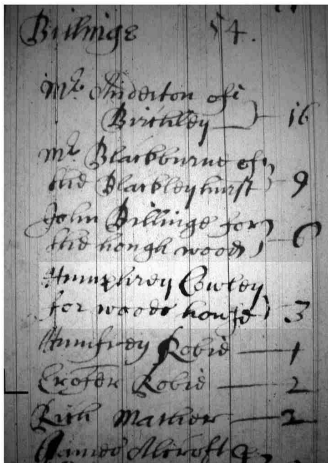 Billinge 54.
Mr. Anderton of
Birchley — 16
Mr. Blackbourne of
the Blackleyhurst — 9
John Billinge for
the hough wood — 6
Humphrey Cowley
for woods house — 3
Humfrey Robie — 1
Robie — 2
Rich Mather — 2
James